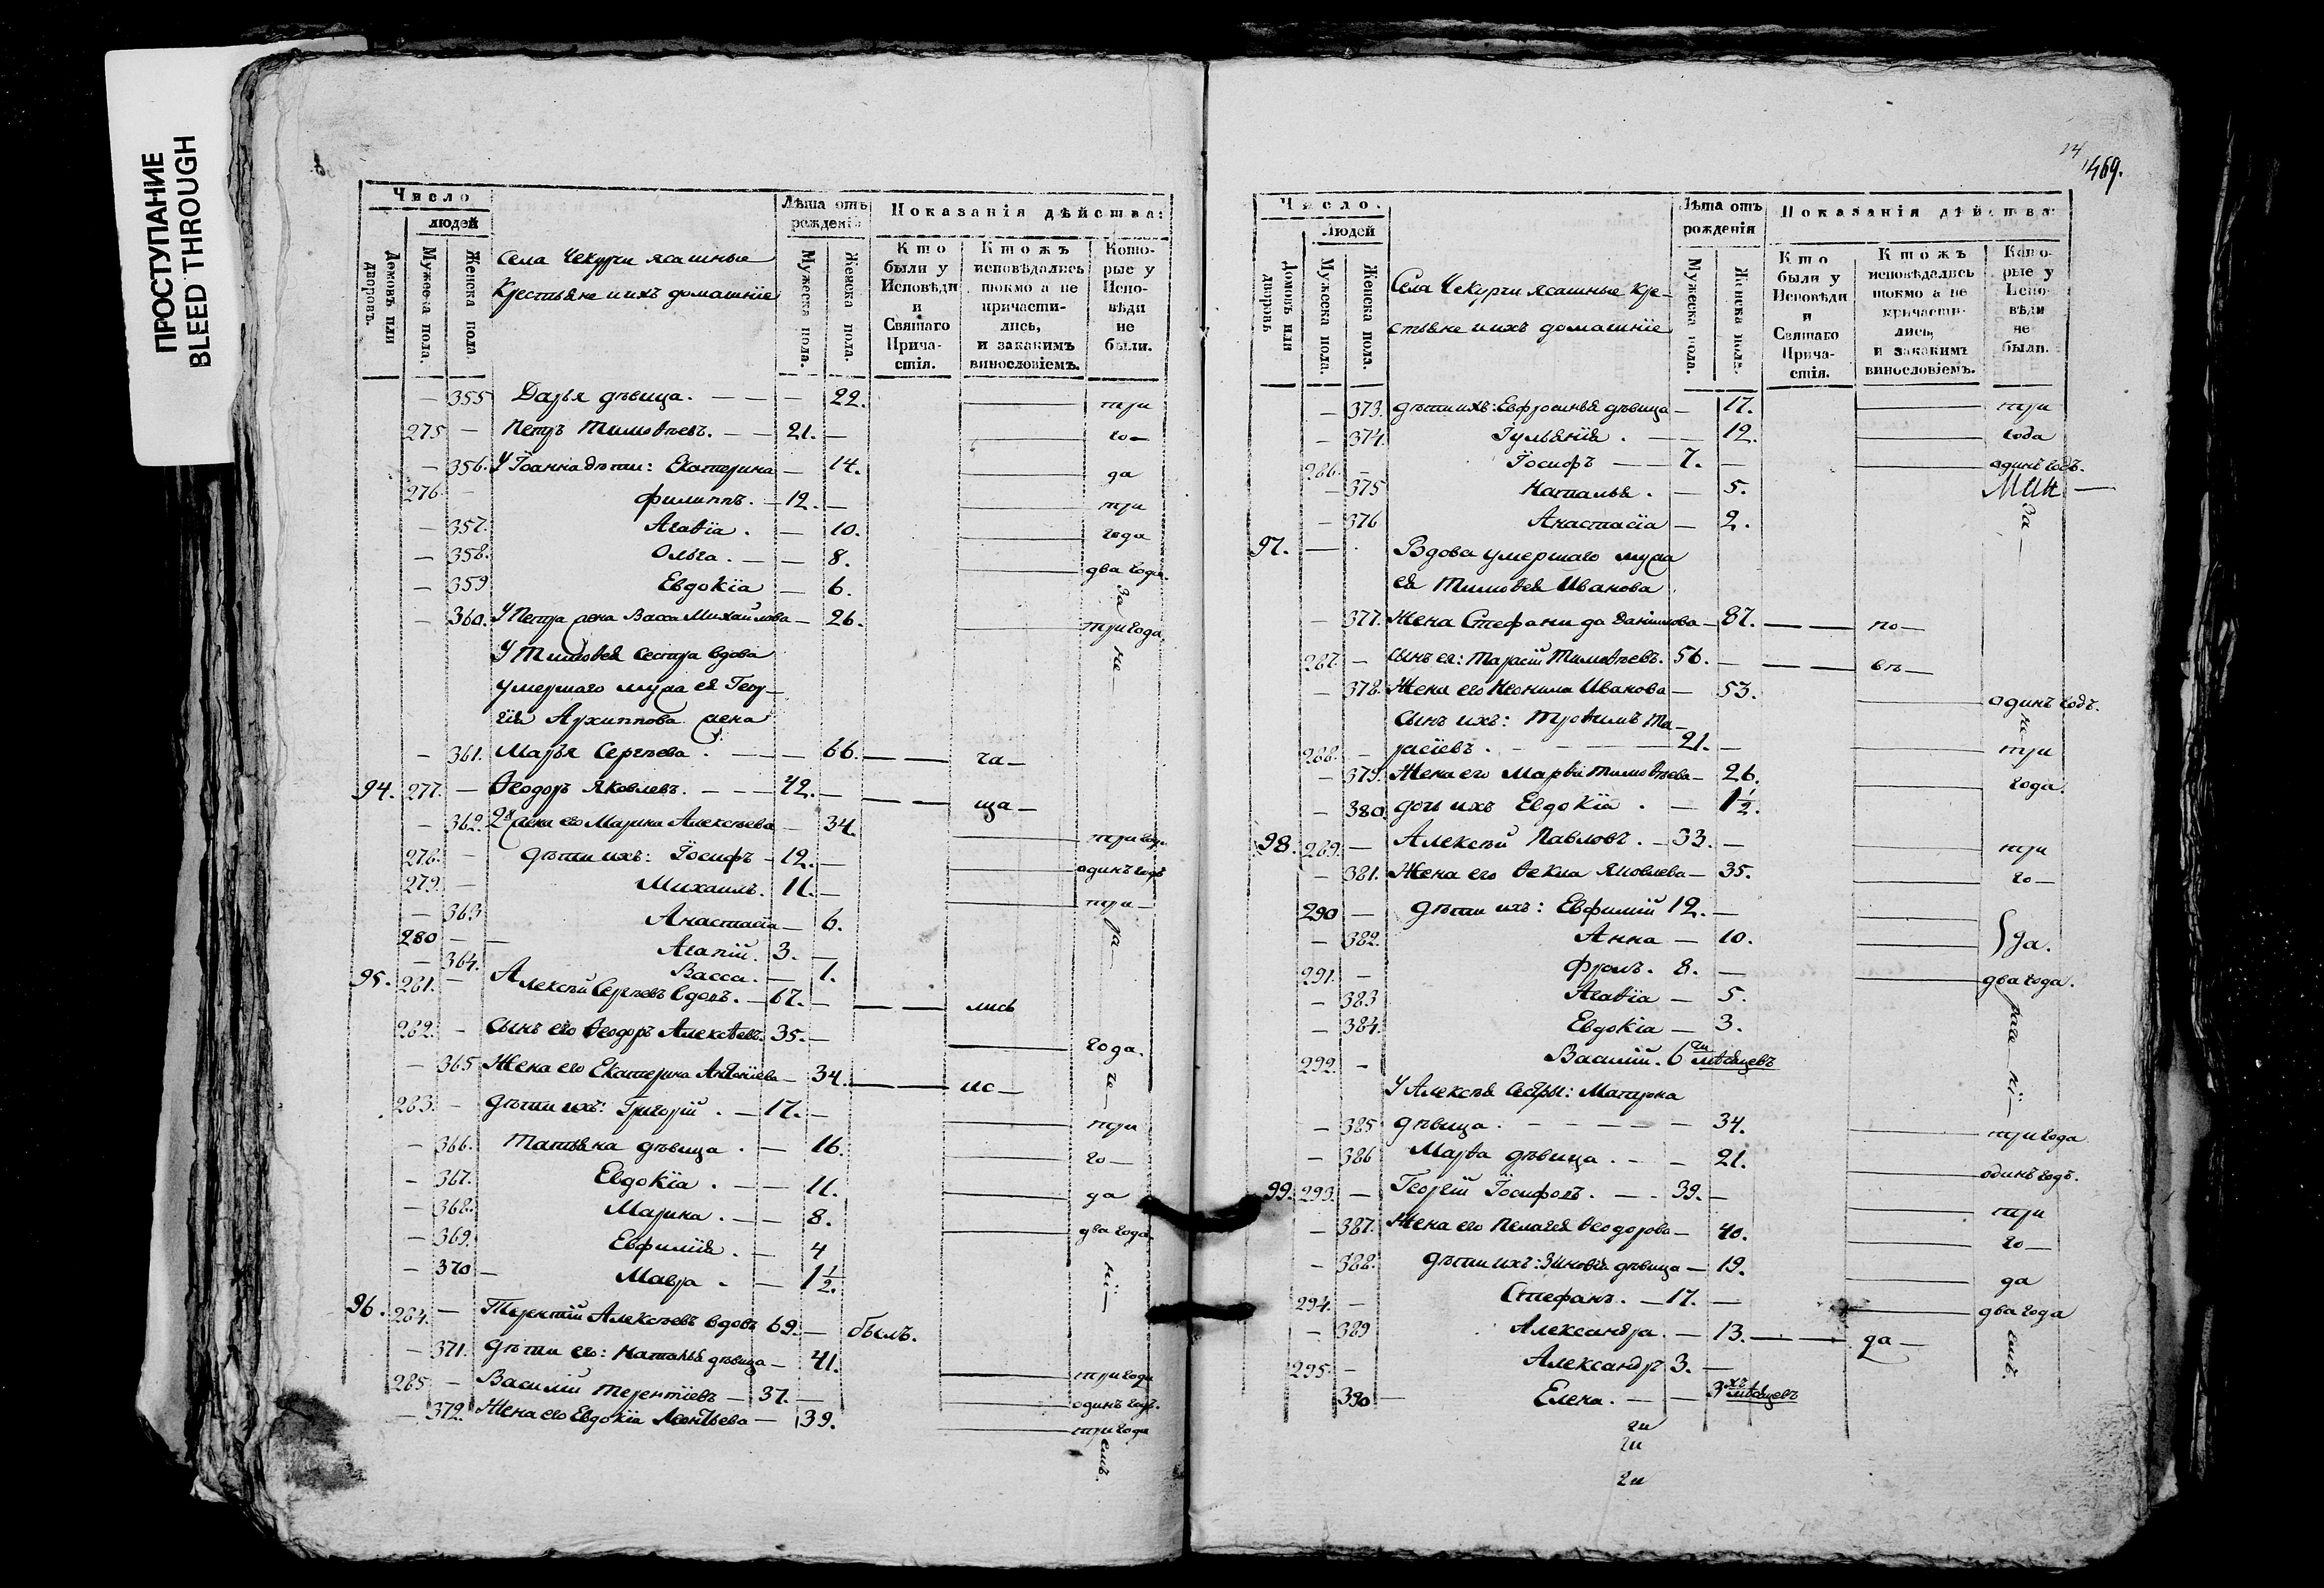 ПРОСТУПАНИЕ
BLEED THROUGH
Число
людей
Домовъ или дворовъ.
Мужеска пола.
Женска пола
Села Чекурчи ясашные
Крестьяне и ихъ домашніе
Лѣта отъ рожденія
Мужеска пола.
Женска пола.
Показанія дѣйства:
Кто были у Исповѣди и Святаго Прича-стія.
Ктожъ исповѣдались токмо а не причасти-лись, и закакимъ винословіемъ.
Кото-рые у Испо-вѣди не были.
— 355 Дарья дѣвица. — — — 22. — три
275 — Петръ Тимоѳеевъ. — — 21. — го—
— 356. У Іоанна дѣти: Екатерина — 14. — да
276. — Филиппъ. — 12. — три
— 357. Агаѳія. — 10. — года
— 358. Ольга. — — 8. — два года.
— 359 Евдокія — 6. За
— 360. У Петра жена Васса Михайлова — 26. — три года.
У Тимоѳея сестра вдова не —
умершаго мужа ея Геор-
гія Архиппова жена
— 361. Марья Сергѣева. — — 66. — — ча—
94. 277. — Ѳеодоръ Яковлевъ. — — — 42. — — — ща—
— 362. 2я жена его Марина Алексѣева — 34. — три года.
278. — дѣти ихъ: Іосифъ — 12. — один годъ
279. — Михаилъ. 11. — три —
— 363 Анастасія — 6. ра—
280 — — Агапій. 3. —
— 364. Васса. — 1.
95. 281. — Алексѣй Сергѣевъ вдовъ. — 67. — — лись
282. — Сынъ его Ѳеодоръ Алексѣевъ. 35. — года.
— 365 Жена его Екатерина — 34. — — ис—
283. — дѣти ихъ: Григорій. — 17. — три
— 366. Татьяна дѣвица. — 16. — го—
— 367. Евдокія. — — 11. — да
— 368. Марина. — — 8. — два года.
— 369. Евфимія. — 4
— 370 — Мавра. — 1½.
96. 284. — Терентій Алексѣевъ вдовъ 69. — былъ.
— 371. дѣти его: Наталья дѣвица — 41. — три года
285. — Василій Терентіевъ — 37. — один годъ.
— 372. Жена его Евдокія Леонтьева — 39. — три года
емъ.
14
469.
Число.
Людей
Домовъ или дворовъ
Мужеска пола.
Женска пола.
Села Чекурчи ясашные Кре-
стьяне и ихъ домашніе
Лѣта отъ рожденія
Мужеска пола.
Женска пола.
Показанія дѣйства:
Кто были у Исповѣди и Святаго Прича-стія.
Ктожъ исповѣдались токмо а не причасти-лись, и закакимъ винословіемъ.
Кото-рые у Испо-вѣди не были.
— 373. дѣти ихъ: Евфросинья дѣвица — 17. — три
— 374. Іульянія. — — 12. — года
286. — Іосифъ — — 7. — один годъ.
— 375 Наталья. — 5.
— 376 Анастасія — 2. За
97. — Вдова умершаго мужа
ея Тимоѳея Иванова
— 377. Жена Стефанида Данилова — 87. — — по—
287. — сынъ ея: Тарасій Тимоѳеевъ. 56. — — въ—
— 378. Жена его Неонила Иванова — 53. — один годъ.
Сынъ ихъ: Троѳимъ Та-
288. — расіевъ. — — — 21. — три
— 379. Жена его Марѳа Тимоѳеева — 26. — года.
— 380. дочь ихъ Евдокія. — 1½.
98. 289. — Алексѣй Павловъ. — 33. — три
— 381. Жена его Ѳекла Яковлева — 35. — го—
290 — дѣти ихъ: Евфимій 12. —
— 382. Анна — 10. — да.
291. — Фролъ. 8. — два года.
— 383 Агаѳія — 5.
— 384. Евдокія — 3.
292. — Василій. 6ти мѣсяцевъ
У Алексѣя сестры: Матрона
— 385 дѣвица. — — — — 34. — три года
— 386 Марѳа дѣвица. — — 21. — один годъ.
99. 293. — Георгій Іосифовъ. — — 39. — три
— 387. Жена его Пелагея Ѳеодорова — 40. — го—
— 388. дѣти ихъ: Зиновія дѣвица — 19. — да
294. — Стефанъ. — 17. — два года
— 389 Александра. — 13. — — да—
295. — Александръ 3. —
390 — Елена. — — 3хъ мѣсяцевъ
ги
ги
ги